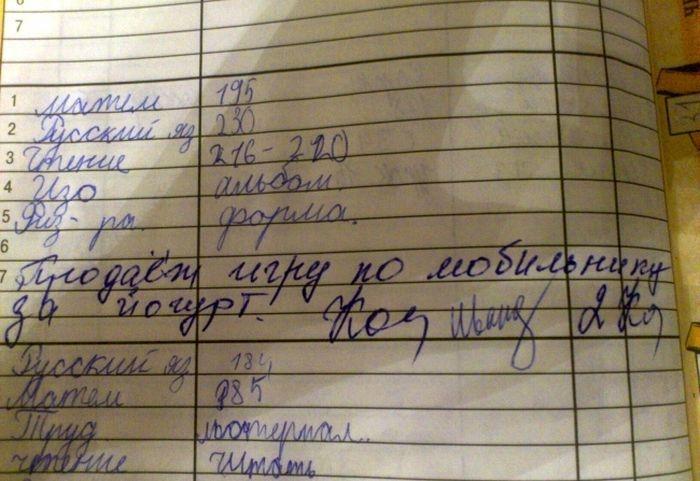 7
1 матем 195
2 Русский яз 230
3 Чтение 216-220
4 Изо альбом.
5 Физ-ра. форма.
6
7 Продаёж игру по мобильнику
за йогурт.
Русский яз 184
Матем 185
Труд материал.
чтение Читать